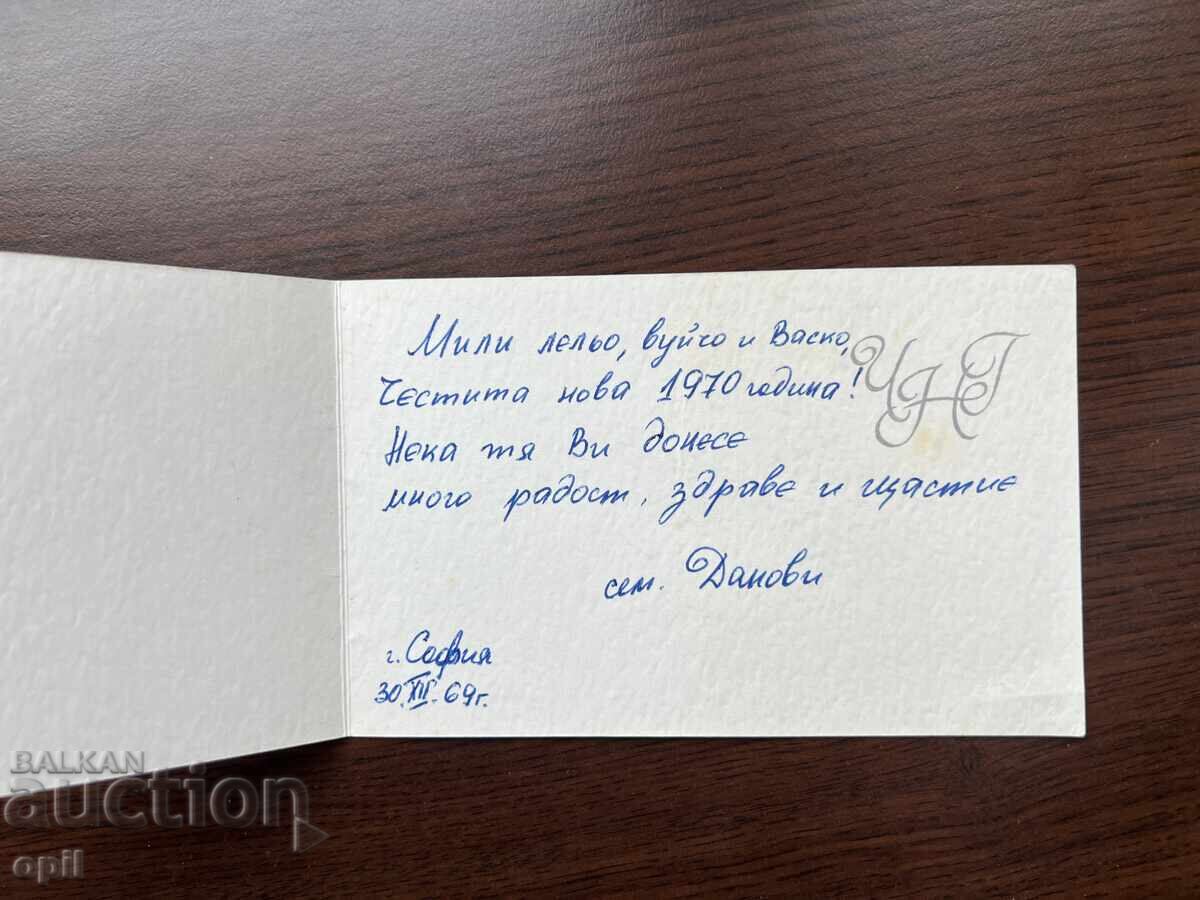 Мили лельо, вуйчо и Васко,
Честита нова 1970 година!
ЧНГ
Нека тя Ви донесе
много радост, здраве и щастие
сем. Данови
г. София
30.XII.69г.
BALKAN
auction
opil